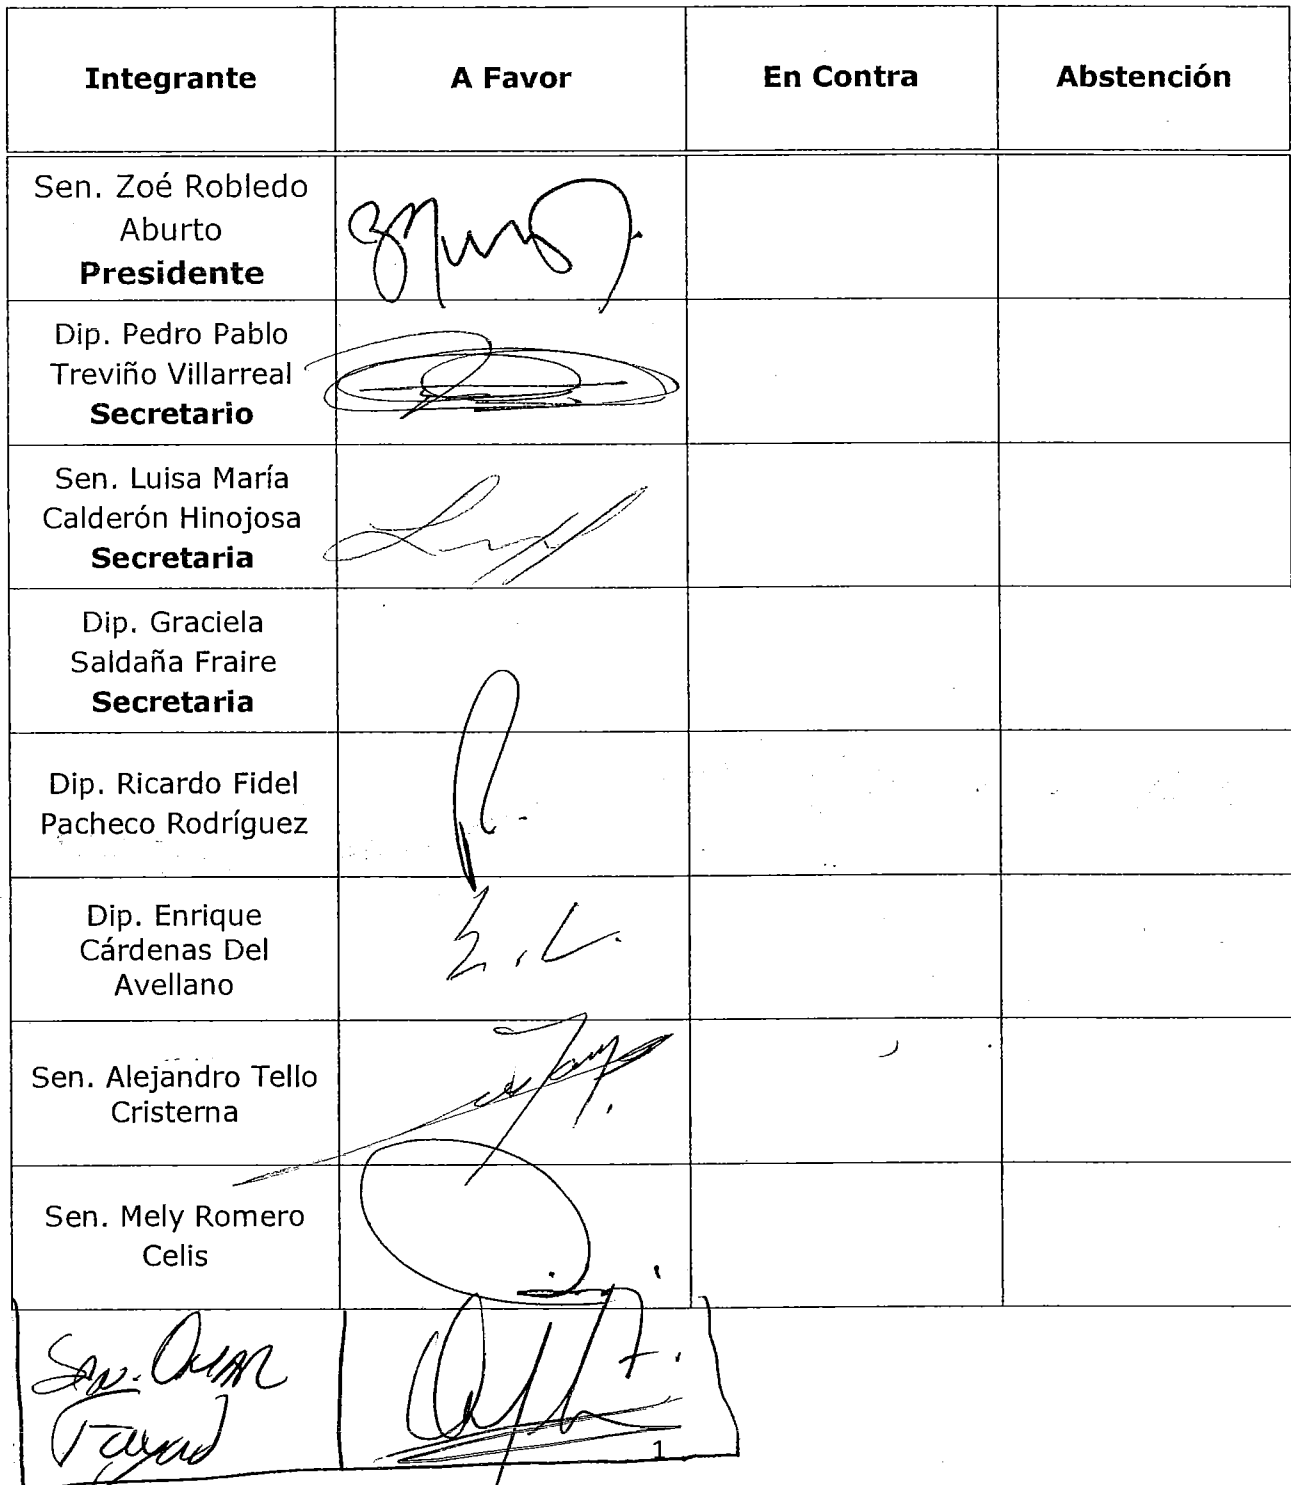 Integrante A Favor En Contra Abstención
Sen. Zoé Robledo
Aburto
Presidente
Dip. Pedro Pablo
Treviño Villarreal
Secretario
Sen. Luisa María
Calderón Hinojosa
Secretaria
Dip. Graciela
Saldaña Fraire
Secretaria
Dip. Ricardo Fidel
Pacheco Rodríguez
Dip. Enrique
Cárdenas Del
Avellano
Sen. Alejandro Tello
Cristerna
Sen. Mely Romero
Celis
Sen. Omar
Fayad
1